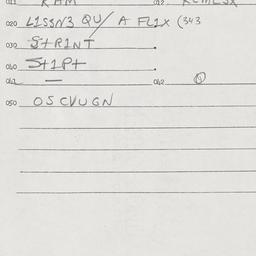 011 RAM 012
020 L1SSN3 QU/ A FL1X (343
030 StR1NT .
040 St1Pt .
041 — 042
050 OSCVUGN